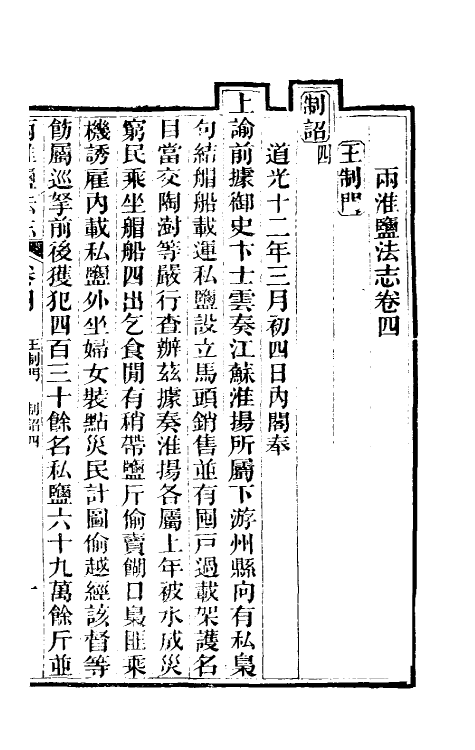 兩淮鹽法志卷四
王制門
制詔四
道光十二年三月初四日內閣奉
上諭前據御史卞士雲奏江蘇淮揚所屬下游州縣向有私梟
句結艒船載運私鹽設立馬頭銷售並有囤戶過載架護名
目當交陶澍等嚴行查辦茲據奏淮揚各屬上年被水成災
窮民乘坐艒船四出乞食閒有稍帶鹽斤偷賣餬口梟匪乘
機誘雇內載私鹽外坐婦女裝點災民計圖偷越經該督等
飭屬巡拏前後獲犯四百三十餘名私鹽六十九萬餘斤並
兩淮鹽法志 卷四 王制門 制詔四 一